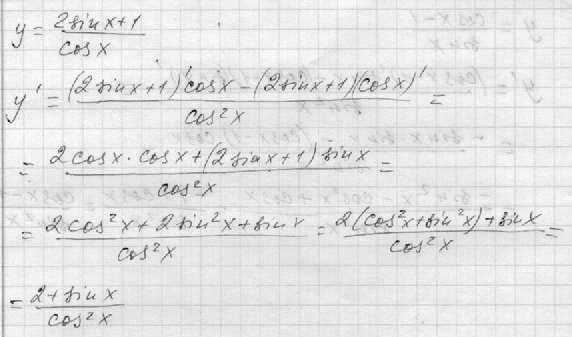 y = (2sinx+1)/(cosx)
y' = ((2sinx+1)'cosx - (2sinx+1)(cosx)')/(cos²x) =
= (2cosx·cosx+(2sinx+1)sinx)/(cos²x) =
= (2cos²x+2sin²x+sinx)/(cos²x) = (2(cos²x+sin²x)+sinx)/(cos²x) =
= (2+sinx)/(cos²x)